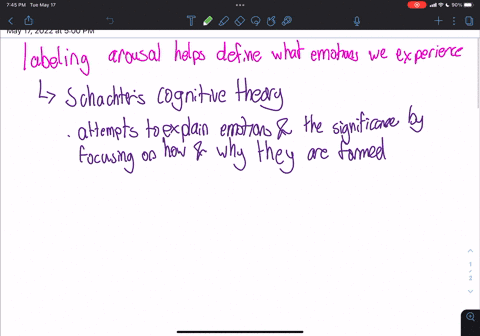 7:45 PM Tue May 17
90%
May 17, 2022 at 5:00 PM
labeling arousal helps define what emotions we experience
↳ Schachter's cognitive theory
· attempts to explain emotions & the significance by
focusing on how & why they are formed
1
2